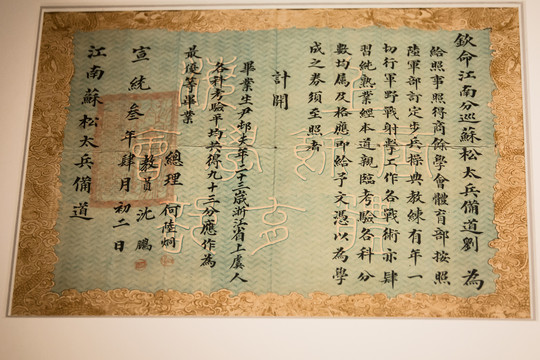 欽命江南分巡蘇松太兵備道劉 為
給照事照得商餘學會體育部按照
陸軍部訂定步兵操典教練有年一
切行軍野戰射擊工作各戰術亦肄
習純熟業經本道親臨考驗各科分
數均屬及格應即給予文憑以為學
成之券須至照者
計開
畢業生尹邨夫年二十三歲浙江省上虞人
各科考驗平均共得九十三分應作為
最優等畢業
總理 何陸炯
教員 沈鵬
宣統叁年肆月初二日
江南蘇松太兵備道